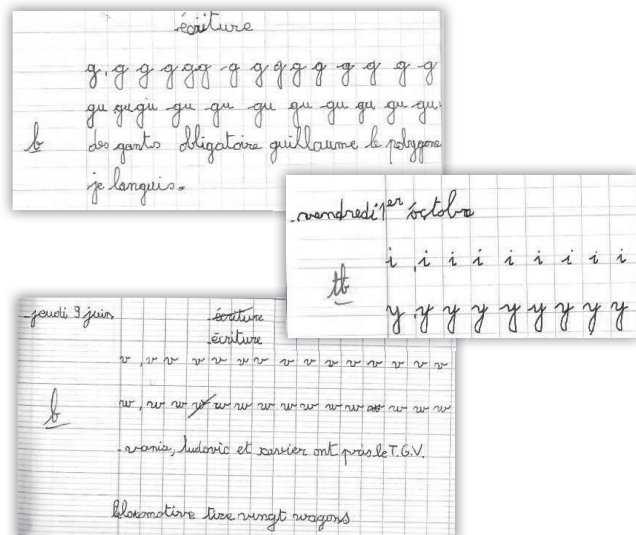 écriture
g, g g g g g g g g g g g g g g
gu gu gu gu gu gu gu gu gu gu gu
b des gants obligatoire guillaume le polygone
je languis.
vendredi 1er octobre
i, i i i i i i i i
tb
y, y y y y y y y y
jeudi 9 juin écriture
écriture
v, v v v v v v v v v v v v v v
b w, w w w w w w w w w w w w w w
vania, ludovic et xavier ont pris le T.G.V.
locomotive tire vingt wagons